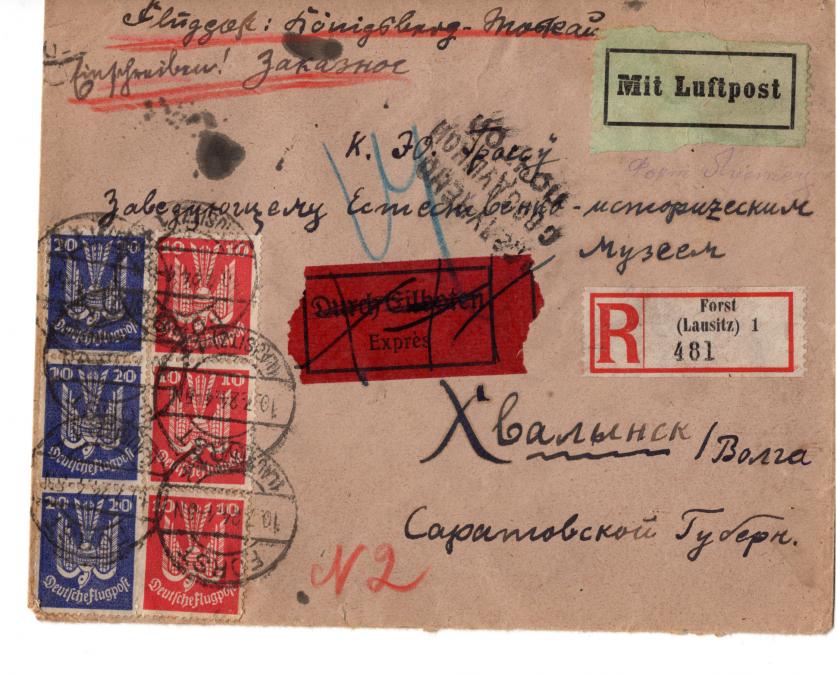 Flugpost: Königsberg-Москаи
Einschreiben! Заказное
Mit Luftpost
К. Ю. Грасу
Заведующему Естественно-историческим
Музеем
Durch Eilboten
Exprès
R
Forst
(Lausitz) 1
481
Хвалынск / Волга
Саратовской Губерн.
N 2
20 20 10 10
Deutsche Flugpost
20 20 10 10
Deutsche Flugpost
20 20 10 10
Deutsche Flugpost Deutsche Flugpost
FORST